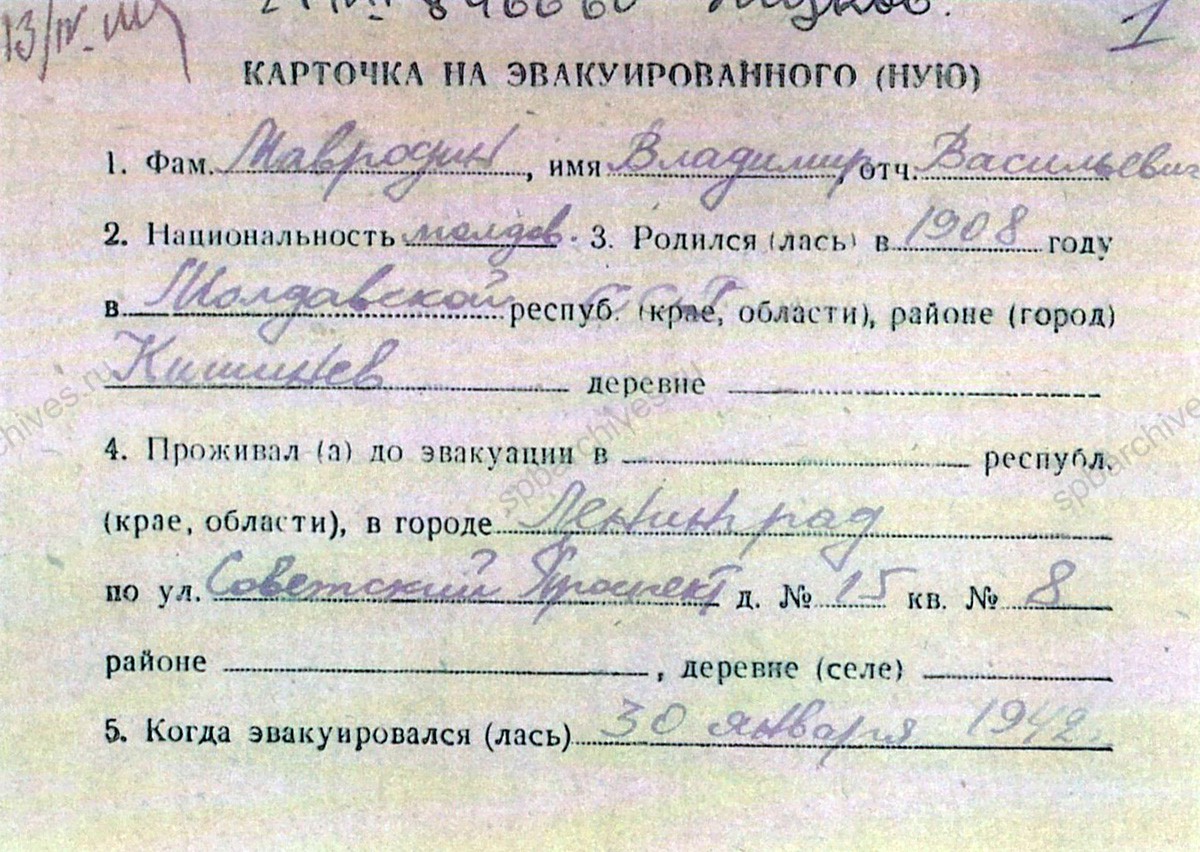 1
КАРТОЧКА НА ЭВАКУИРОВАННОГО (НУЮ)
1. Фам. Мавродин, имя Владимир, отч. Васильевич
2. Национальность молдав. 3. Родился (лась) в 1908 году
в Молдавской ССР респуб. (крае, области), районе (город)
Кишинев деревне
4. Проживал (а) до эвакуации в республ.
(крае, области), в городе Ленинград
по ул. Советский Проспект д. № 15 кв. № 8
районе , деревне (селе)
5. Когда эвакуировался (лась) 30 января 1942г.
spbarchives.ru